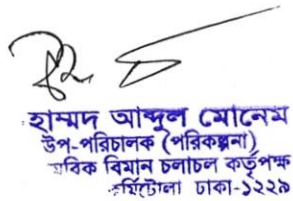 হাম্মদ আব্দুল মোনেম
উপ-পরিচালক (পরিকল্পনা)
বিমান চলাচল কর্তৃপক্ষ
ঢাকা-১২২৯